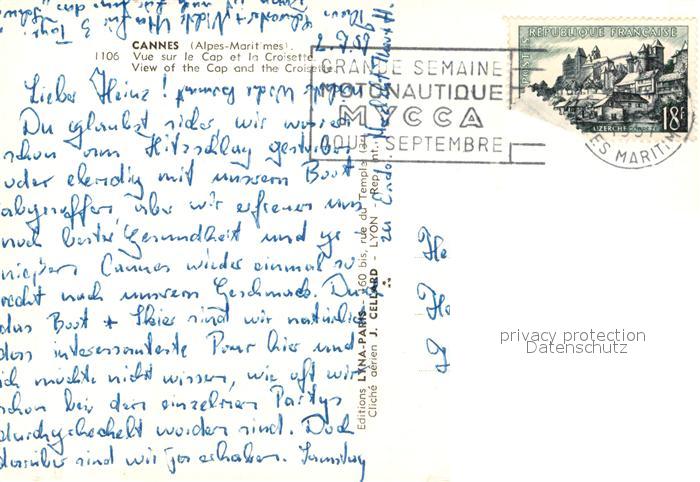 CANNES (Alpes-Maritimes).
1106 Vue sur le Cap et la Croisette.
View of the Cap and the Croisette.
2.9.59
GRANDE SEMAINE
MOTONAUTIQUE
MYCCA
AOUT SEPTEMBRE
RÉPUBLIQUE FRANÇAISE
POSTES
18F
UZERCHE
ES MARITIM
Lieber Heinz!
Du glaubst sicher wir wären
schon am Hitzschlag gestorben
oder elendig mit unserem Boot
abgesoffen, aber wir erfreuen uns
noch bester Gesundheit und ge
niessen Cannes wieder einmal so
recht nach unserem Geschmack. Durch
das Boot + Skier sind wir natürlich
das interessanteste Paar hier und
ich möchte nicht wissen, wie oft wir
schon bei den einzelnen Partys
durchgehechelt worden sind. Doch
darüber sind wir ja erhaben. Samstag
Editions LYNA-PARIS - 160 bis, rue du Temple
Cliché aérien J. CELLARD - LYON - Rep. int.
privacy protection
Datenschutz